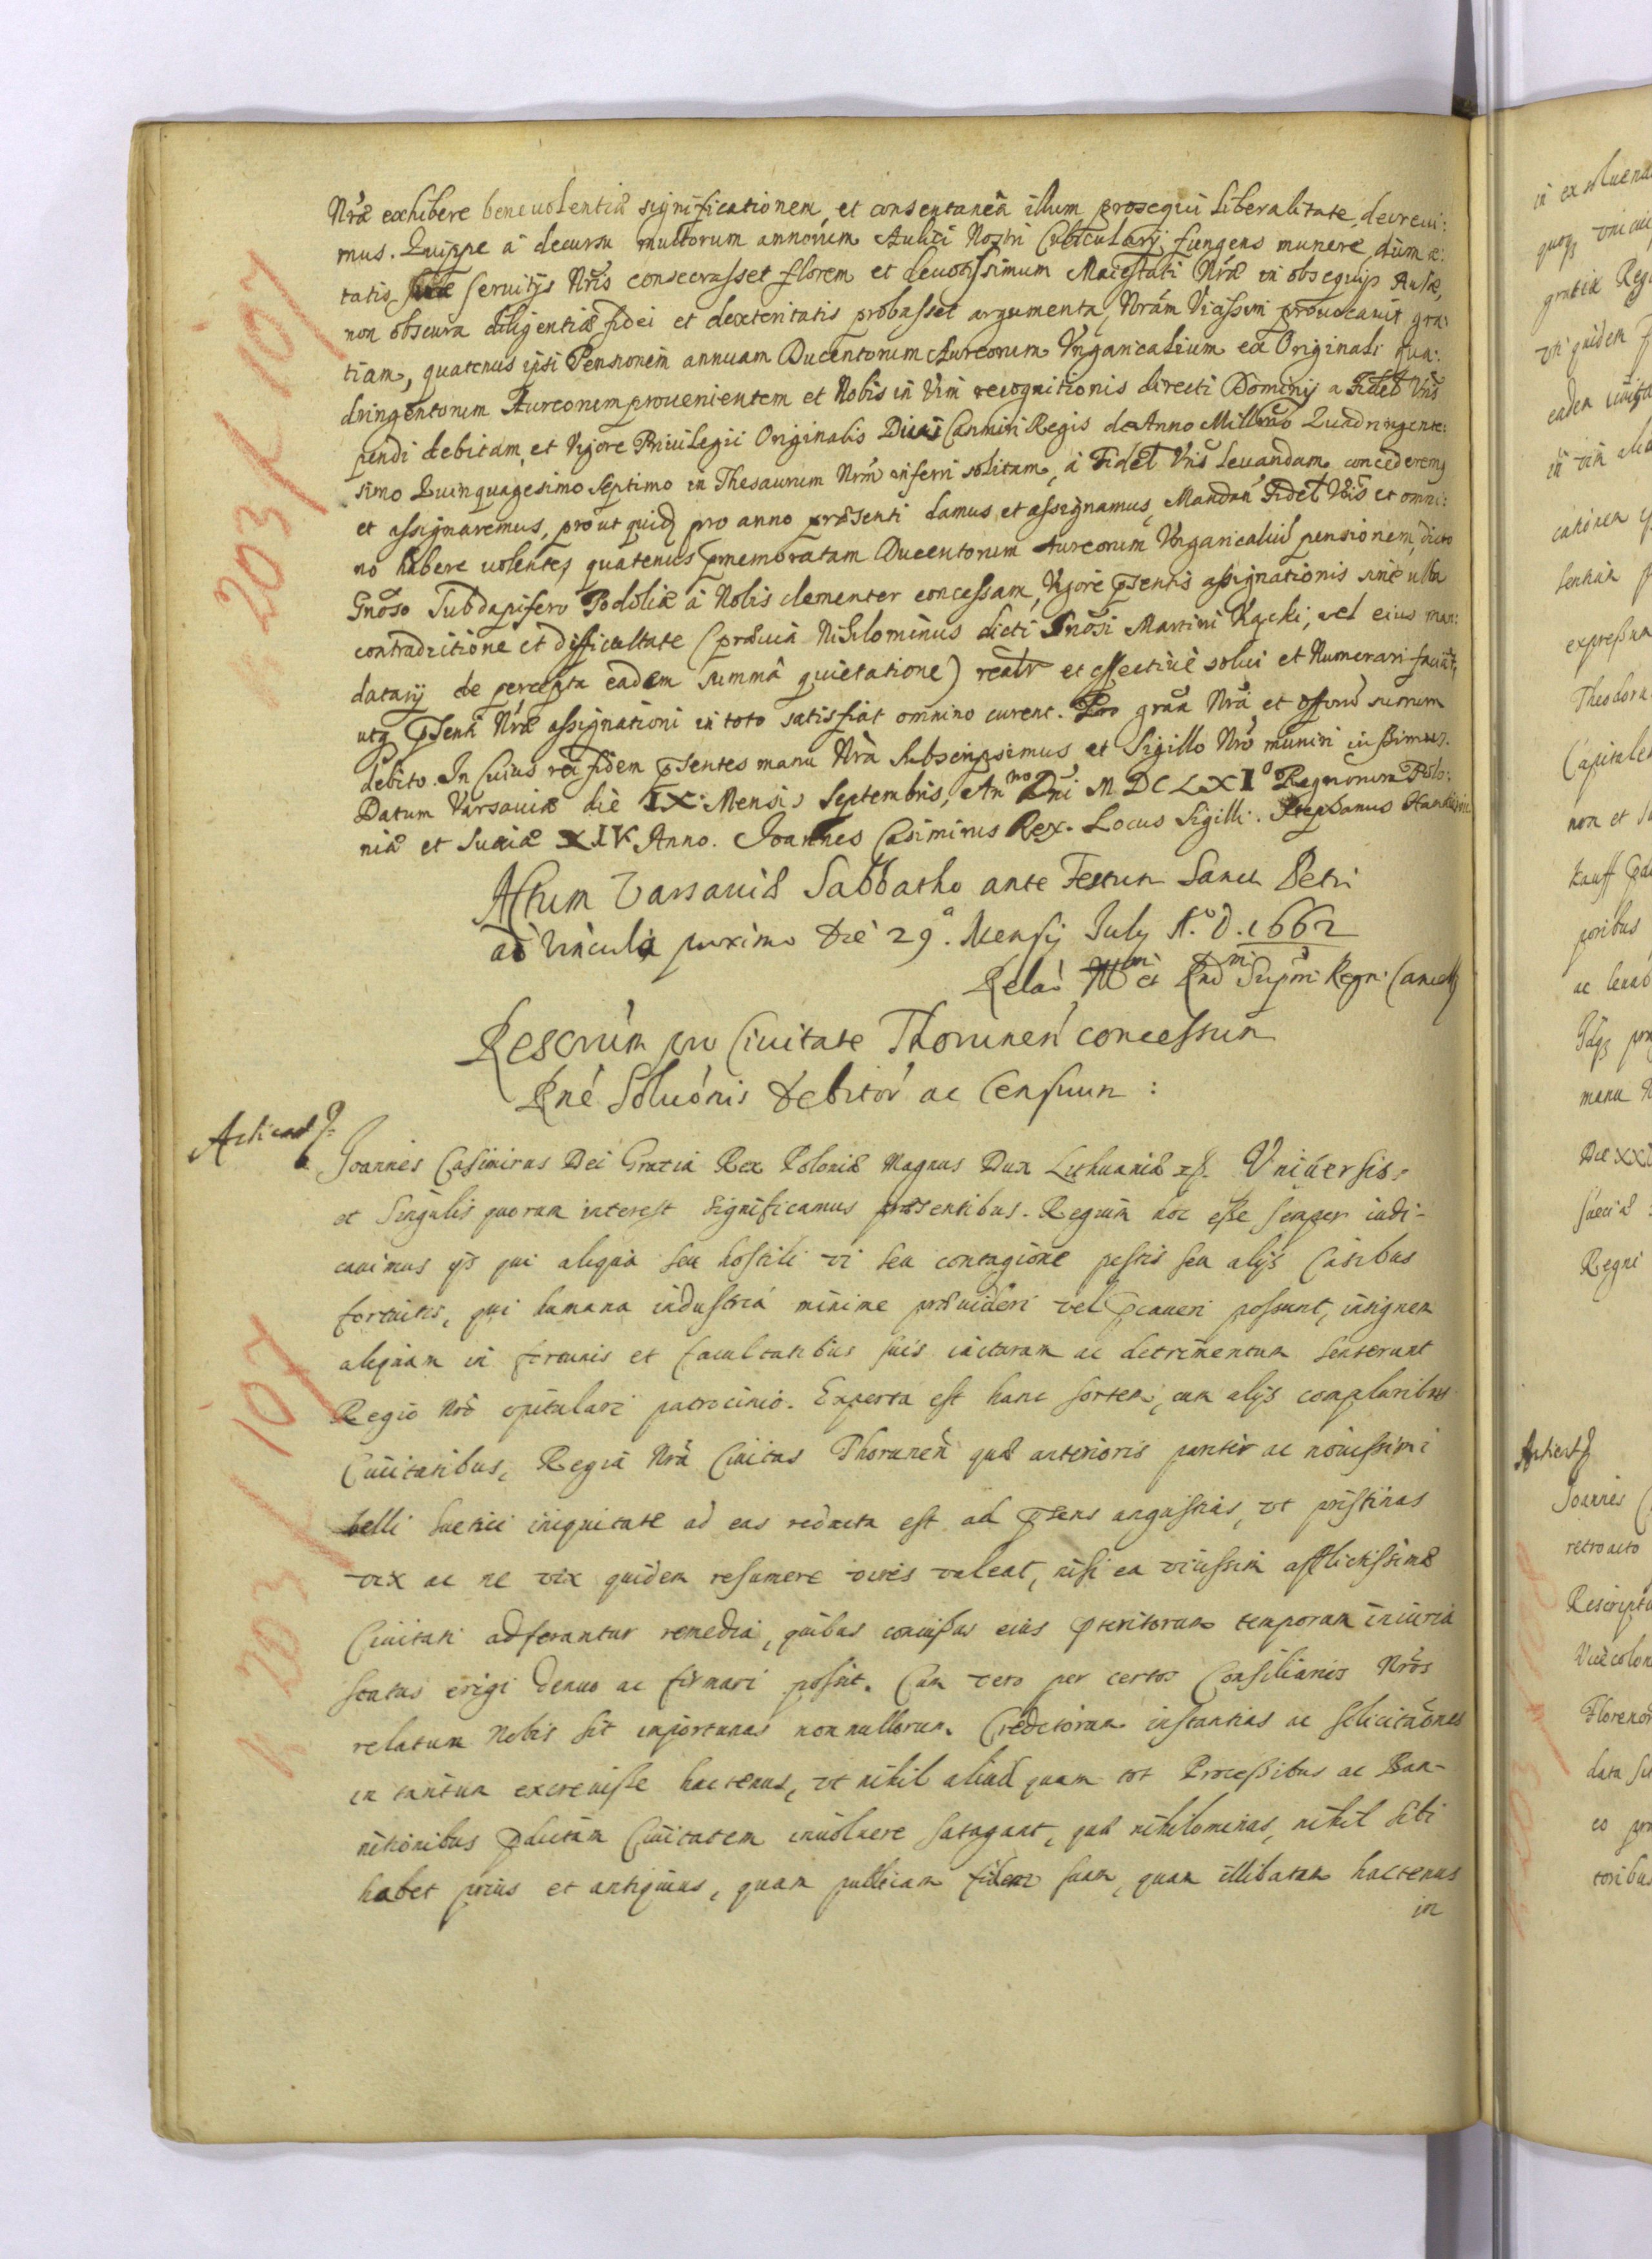 Nræ exhibere beneuolentiæ significationem, et consentaneâ illum prosequi Liberalitate, decreui:
mus. Quippe à decursu multorum annorum Aulici Nostri Cubicularij fungens munere, dum æ:
tatis suæ seruitijs Nris consecrasset florem et deuotissimum Maiestati Nræ in obsequijs Aulæ,
non obscura diligentiæ fidei et dexteritatis probasset argumenta, Nram Vicissim prouocauit gra:
tiam, quatenus ipsi Pensionem annuam Ducentorum Aureorum Vngaricalium ex Originali Qua:
dringentorum Aureorum prouenientem et Nobis in Vim recognitionis directi Dominij a Fidel Vris
pendi debitam, et Vigore Priuilegii Originalis Diui Casimiri Regis de Anno Millmo Quadringente:
simo Quinquagesimo Septimo in Thesaurum Nrm inferri solitam, à Fidel Vris Leuandam concederemq
et assignaremus, prout quidq pro anno præsenti damus et assignamus, Mandan Fidel Vris et omni:
no habere uolentes, quatenus pmemoratam Ducentorum Aureorum Vngaricaliu pensionem, dicto
Gnoso Subdapifero Podoliæ à Nobis clementer concessam, Vigore psentis assignationis sine ulla
contradictione et difficultate (præuia Nihilominus dicti Gnosi Martini Kącki, vel eius man:
datarij de percepta eadem summâ quietatione) realr et effectiuè solui et Numerari faciat,
utq psenti Nræ assignationi in toto satisfiat omnino curent. Pro graa Nra, et officij suorum
debito. In cuius rei fidem psentes manu Nrà Subscripsimus et Sigillo Nro muniri iussimus.
Datum Varsauiæ die IX. Mensis Septembris, Anno Dni M DC LXI° Regnorum Polo:
niæ et Sueciæ XIV Anno. Joannes Casimirus Rex. Locus Sigilli. Stephanus
Actum Varsauiæ Sabbatho ante Festum Sancti Petri
ad Vincula proximo die 29a Mensis July A.o D. 1662
Relao Illmi et Rndmi Supmi Regni Cancell
Rescrum pro Ciuitate Thorunen concessum
Rne Soluonis debitor ac Censuum:
Joannes Casimirus Dei Gratia Rex Poloniæ Magnus Dux Lithuaniæ xß. Vniuersis,
et Singulis quorum interest significamus præsentibus. Regium hoc esse semper iudi-
cauimus ijs qui aliqua seu hostili vi seu contagione pestis seu alijs Casibus
fortuitis, qui humana industria minime præuideri vel pcaueri possunt, insignem
aliquam in fortunis et facultatibus suis iacturam ac detrimentum senserunt
Regio Nro opitulari patrocinio. Experta est hanc sortem, cum alijs compluribus
Ciuitatibus, Regia Nra Ciuitas Thorunen quæ anterioris pariter ac nouissimi
belli Suetici iniquitate ad eas redacta est ad psens angustias, vt pristinas
vix ac ne vix quidem resumere vires valeat, nisi ea vicissim afflictissimæ
Ciuitati adferantur remedia, quibus concussus eius pteritorum temporum iniuria
status erigi denuo ac firmari possit. Cum vero per certos Consiliarios Nros
relatum Nobis sit importunas nonnullorum Creditorum instantias ac solicitaones
in tantum excreuisse hactenus, vt nihil aliud quam tot Processibus ac Ban-
nitionibus pdictam Ciuitatem inuoluere satagant, quæ nihilominus, nihil sibi
habet prius et antiquius, quam publicam fidem suam, quam illibatam hactenus
in